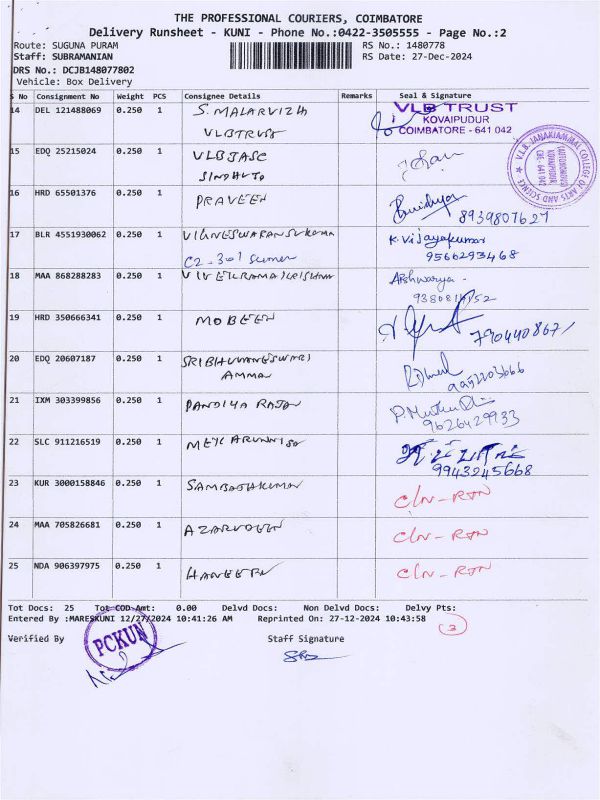 THE PROFESSIONAL COURIERS, COIMBATORE
Delivery Runsheet - KUNI - Phone No.:0422-3505555 - Page No.:2
Route: SUGUNA PURAM RS No.: 1480778
Staff: SUBRAMANIAN RS Date: 27-Dec-2024
DRS No.: DCJB148077802
Vehicle: Box Delivery
S No Consignment No Weight PCS Consignee Details Remarks Seal & Signature
14 DEL 121488069 0.250 1 S. MALARVIZH VLB TRUST
VLBTRUST KOVAIPUDUR
COIMBATORE - 641 042
15 EDQ 25215024 0.250 1 VLBJASC
V.L.B. JANAKIAMMAL COLLEGE OF ARTS AND SCIENCE
16 HRD 65501376 0.250 1 PRAVEEN
8939807627
17 BLR 4551930062 0.250 1 K. Vijayakumar
9566293468
18 MAA 868288283 0.250 1 Aishwarya
19 HRD 350666341 0.250 1 MOBEEN
20 EDQ 20607187 0.250 1 SRIBHUVANESWARI
AMMAN
21 IXM 303399856 0.250 1 PANDIYA RAJAN
9626429933
22 SLC 911216519 0.250 1
9943245668
23 KUR 3000158846 0.250 1 CLN-RTN
24 MAA 705826681 0.250 1 CLN-RTN
25 NDA 906397975 0.250 1 CLN-RTN
Tot Docs: 25 Tot COD Amt: 0.00 Delvd Docs: Non Delvd Docs: Delvy Pts:
Entered By :MARESKUNI 12/27/2024 10:41:26 AM Reprinted On: 27-12-2024 10:43:58
3
Verified By PCKUN Staff Signature